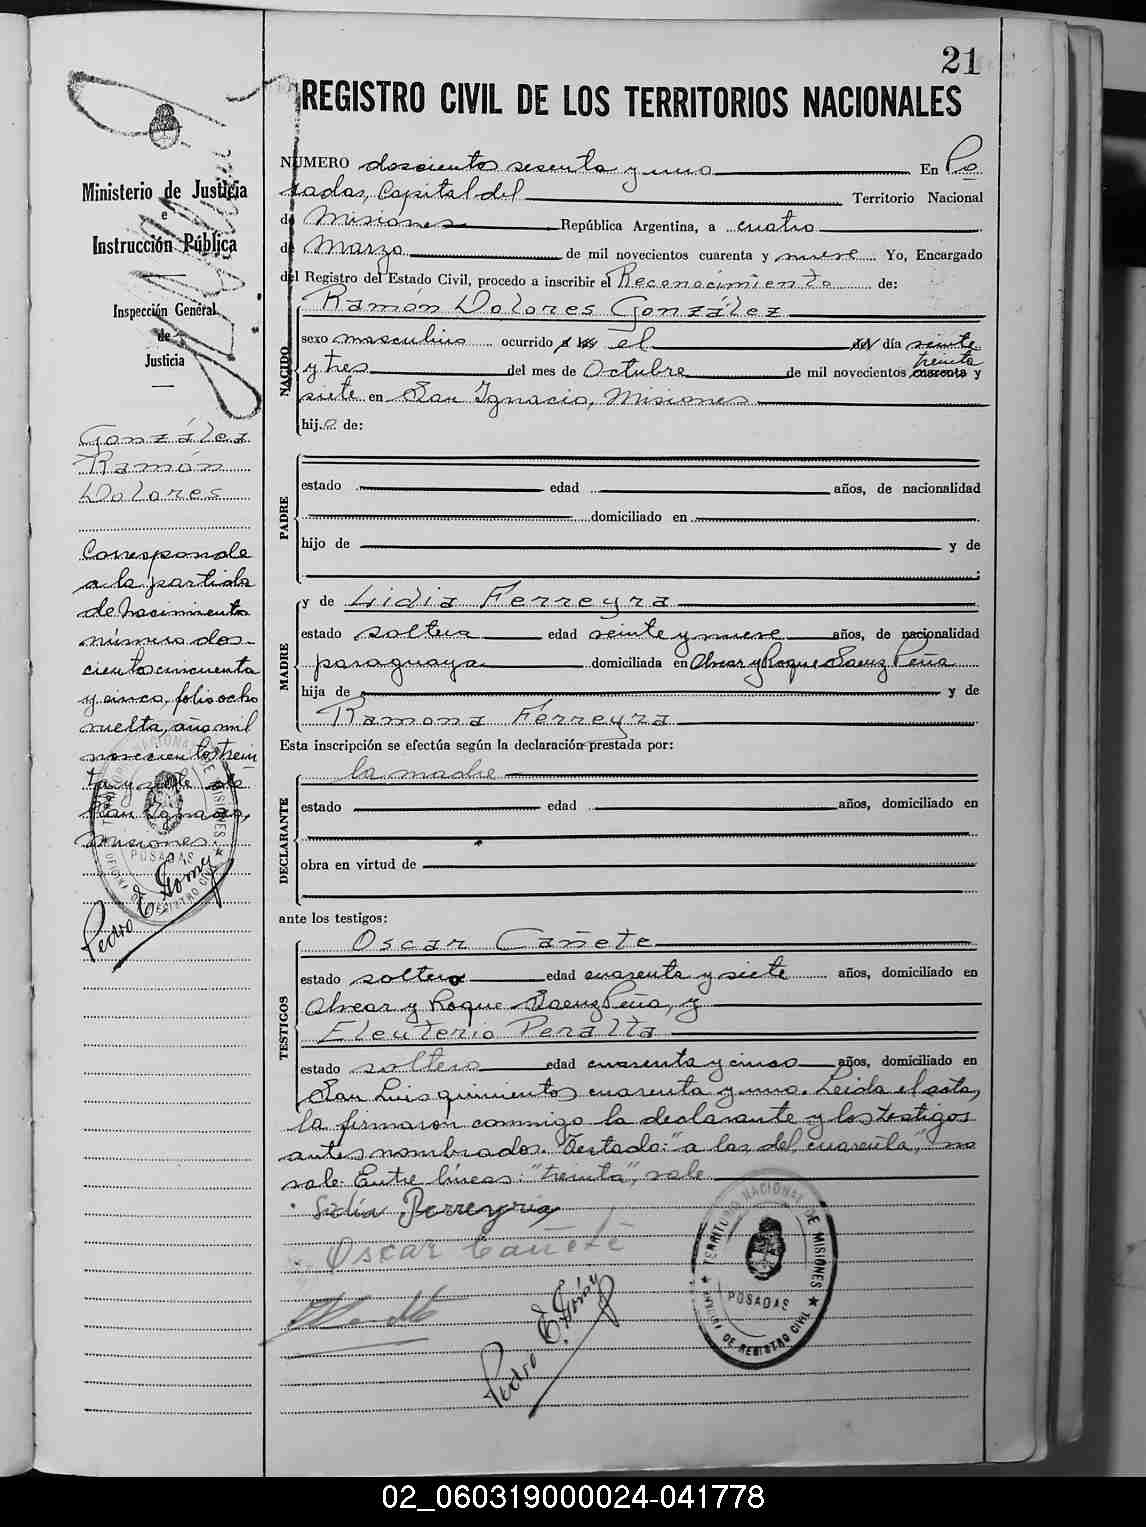 21
REGISTRO CIVIL DE LOS TERRITORIOS NACIONALES
Ministerio de Justicia
e
Instrucción Pública
Inspección General
de
Justicia
González
Ramón
Dolores
Corresponde
a la partida
de Nacimiento
número dos-
cientos cincuenta
y cinco, folio ocho
vuelta, año mil
novecientos trein
ta y siete de
San Ignacio,
Misiones.
TERRITORIO NACIONAL DE MISIONES
POSADAS
OFICINA DE REGISTRO CIVIL
Pedro E. Gómez
NUMERO doscientos sesenta y uno En Po
sadas, Capital del Territorio Nacional
de Misiones República Argentina, a cuatro
de Marzo de mil novecientos cuarenta y nueve Yo, Encargado
del Registro del Estado Civil, procedo a inscribir el Reconocimiento de:
Ramon Dolores González
NACIDO
sexo masculino ocurrido a las el del día veinte
y tres del mes de Octubre de mil novecientos cuarenta treinta y
siete en San Ignacio, Misiones
hijo de:
PADRE
estado edad años, de nacionalidad
domiciliado en
hijo de y de
MADRE
y de Lidia Ferreyra
estado soltera edad veinte y nueve años, de nacionalidad
paraguaya domiciliada en Alvear y Roque Saenz Peña
hija de y de
Ramona Ferreyra
Esta inscripción se efectúa según la declaración prestada por:
la madre
DECLARANTE
estado edad años, domiciliado en
obra en virtud de
ante los testigos:
TESTIGOS
Oscar Cañete
estado soltero edad cuarenta y siete años, domiciliado en
Alvear y Roque Saenz Peña, y
Eleuterio Peralta
estado soltero edad cuarenta y cinco años, domiciliado en
San Luis quinientos cuarenta y uno. Leida el acta,
la firmaron conmigo la declarante y los testigos
antes nombrados. Testado: "a las, del, cuarenta", no
vale. Entre líneas: "treinta", vale.
Lidia Ferreyra
Oscar Cañete
Pedro E. Gómez
TERRITORIO NACIONAL DE MISIONES
POSADAS
OFICINA DE REGISTRO CIVIL
02_060319000024-041778